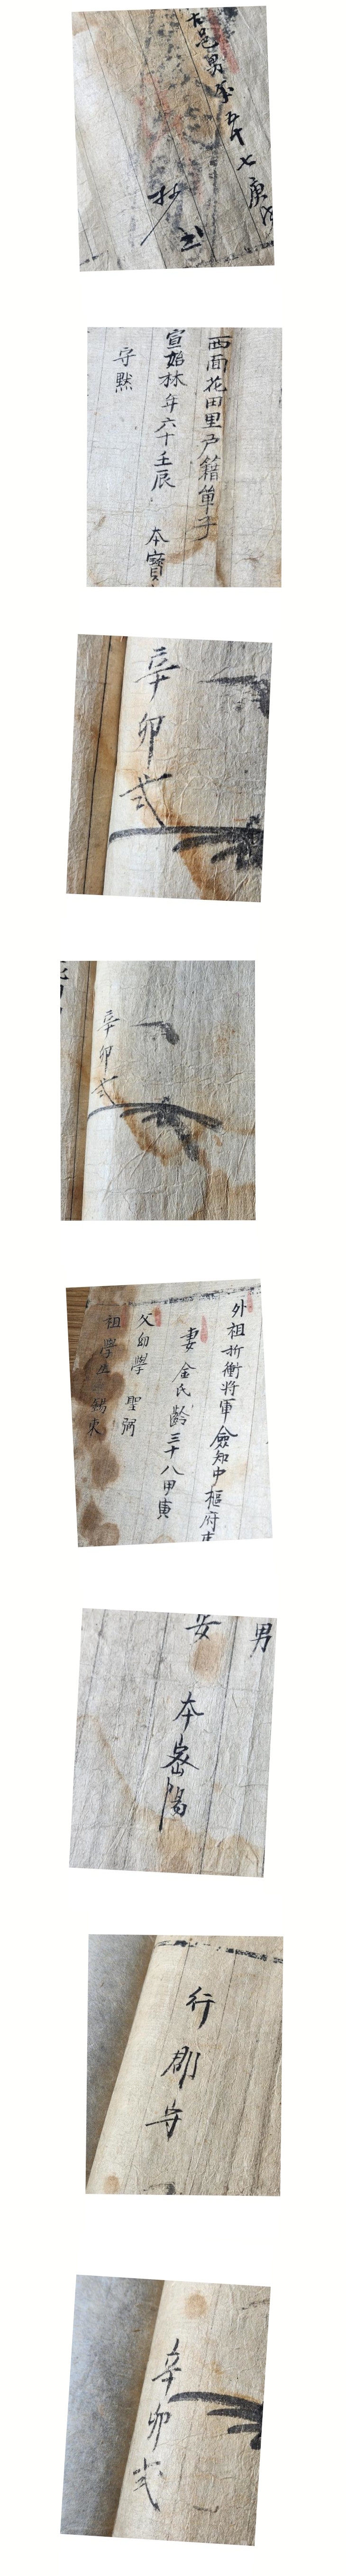 古邑男年五十七庚戌
抄
西面花田里戶籍單子
宣始林年六十壬辰 本寶
守默
辛卯式
辛卯式
外祖折衝將軍僉知中樞府事
妻金氏齡三十八甲寅
父幼學 聖弼
祖學生 錫東
男
本密陽
行
郡
守
辛卯式